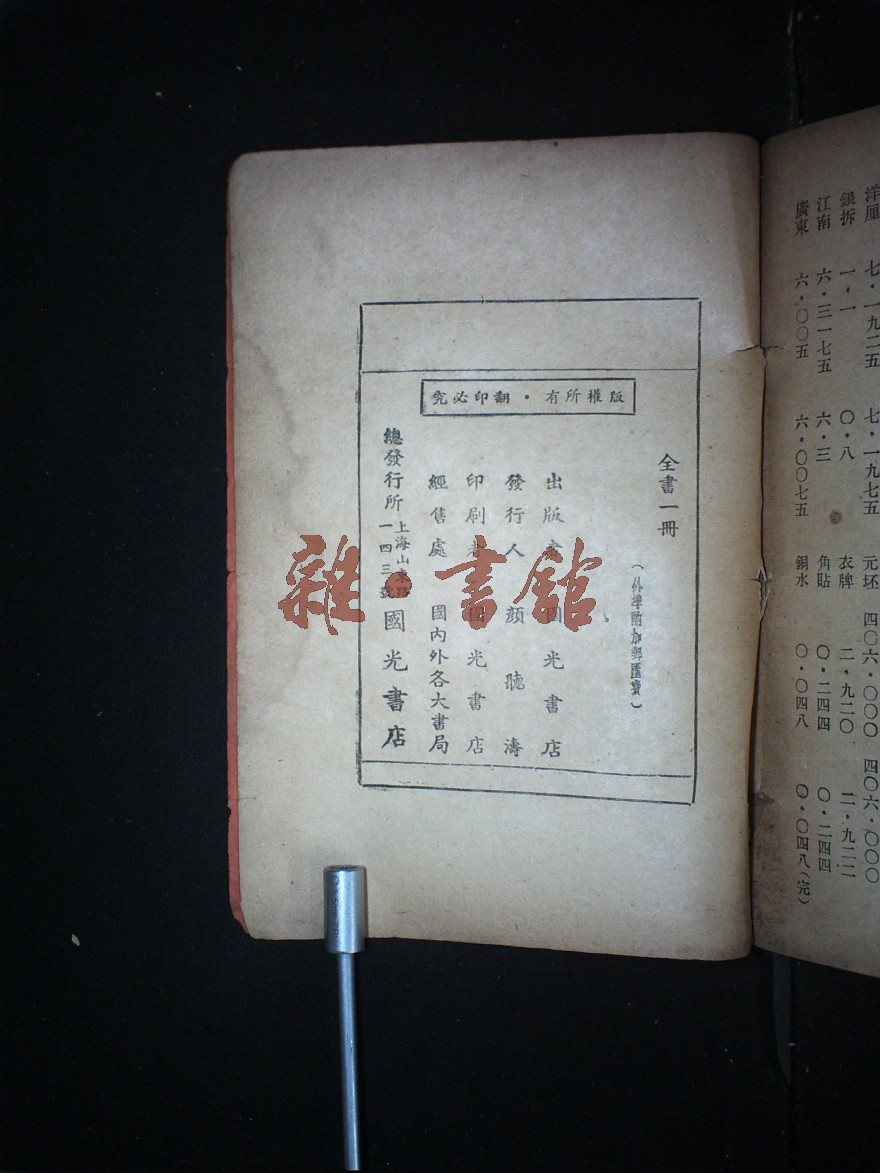 洋厘 七·一九二五 七·一九七五 元坯 四〇六·〇〇〇 四〇六·〇〇〇
銀拆 一·一 〇·八 衣牌 二·九二〇 二·九二二
江南 六·三一七五 六·三 角貼 〇·二四四 〇·二四四
廣東 六·〇〇五 六·〇〇七五 銅水 〇·〇四八 〇·〇四八(完)
版權所有·翻印必究
全書一冊
(外埠酌加郵匯費)
出版者 國光書店
發行人 顏聽濤
印刷者 國光書店
經售處 國內外各大書局
總發行所 上海山東路一四三號 國光書店
雜·書館